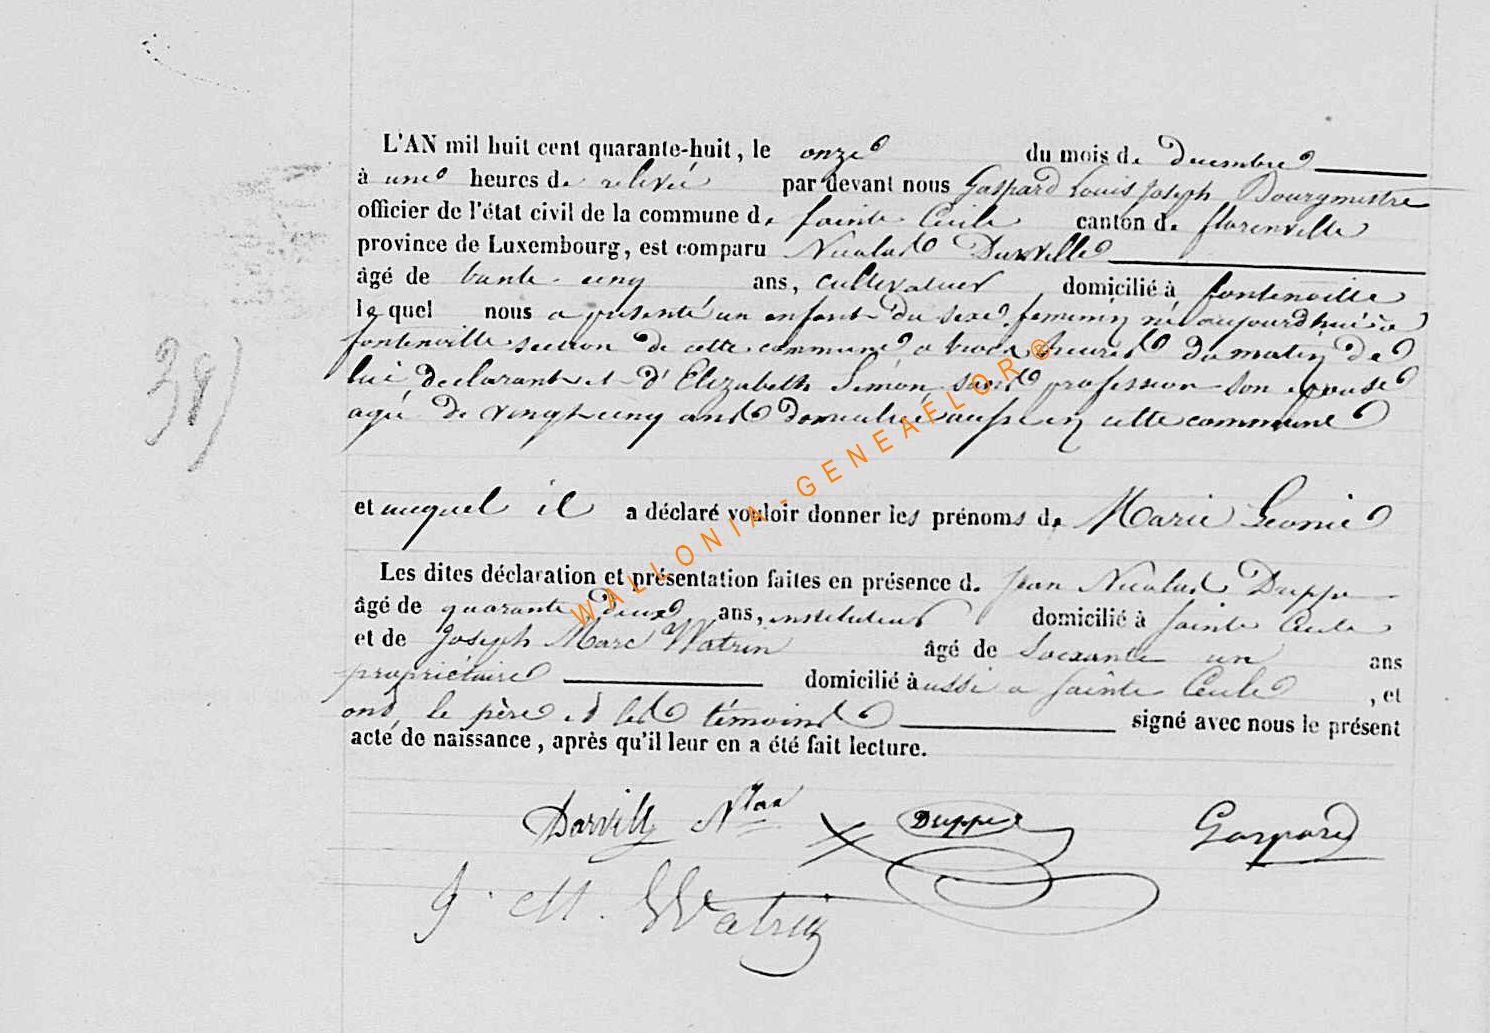 L'AN mil huit cent quarante-huit, le onze du mois de decembre
à une heures de relevée par devant nous Gaspard Louis Joseph Bourgmestre
officier de l'état civil de la commune de Sainte Cécile canton de florenville
province de Luxembourg, est comparu Nicolas Darville
âgé de trente-cinq ans, cultivateur domicilié à fontenoille
le quel nous a présenté un enfant du sexe feminin né aujourdhui à
fontenoille section de cette commune a trois heures du matin de
lui declarant et d'Elizabeth Simon sans profession son epouse
agée de vingt cinq ans domiciliée aussi en cette commune
38)
et auquel il a déclaré vouloir donner les prénoms de Marie Leonie
Les dites déclaration et présentation faites en présence de Jean Nicolas Duppe
âgé de quarante deux ans, instituteur domicilié à Sainte Cecile
et de Joseph Marc Watrin âgé de Soixante un ans
propriétaire domicilié aussi a Sainte Cecile, et
ont le père et les témoins signé avec nous le présent
acte de naissance, après qu'il leur en a été fait lecture.
Darville Nlas Duppe Gaspard
J. M. Watrin
WALLONIA-GENEAELOR®